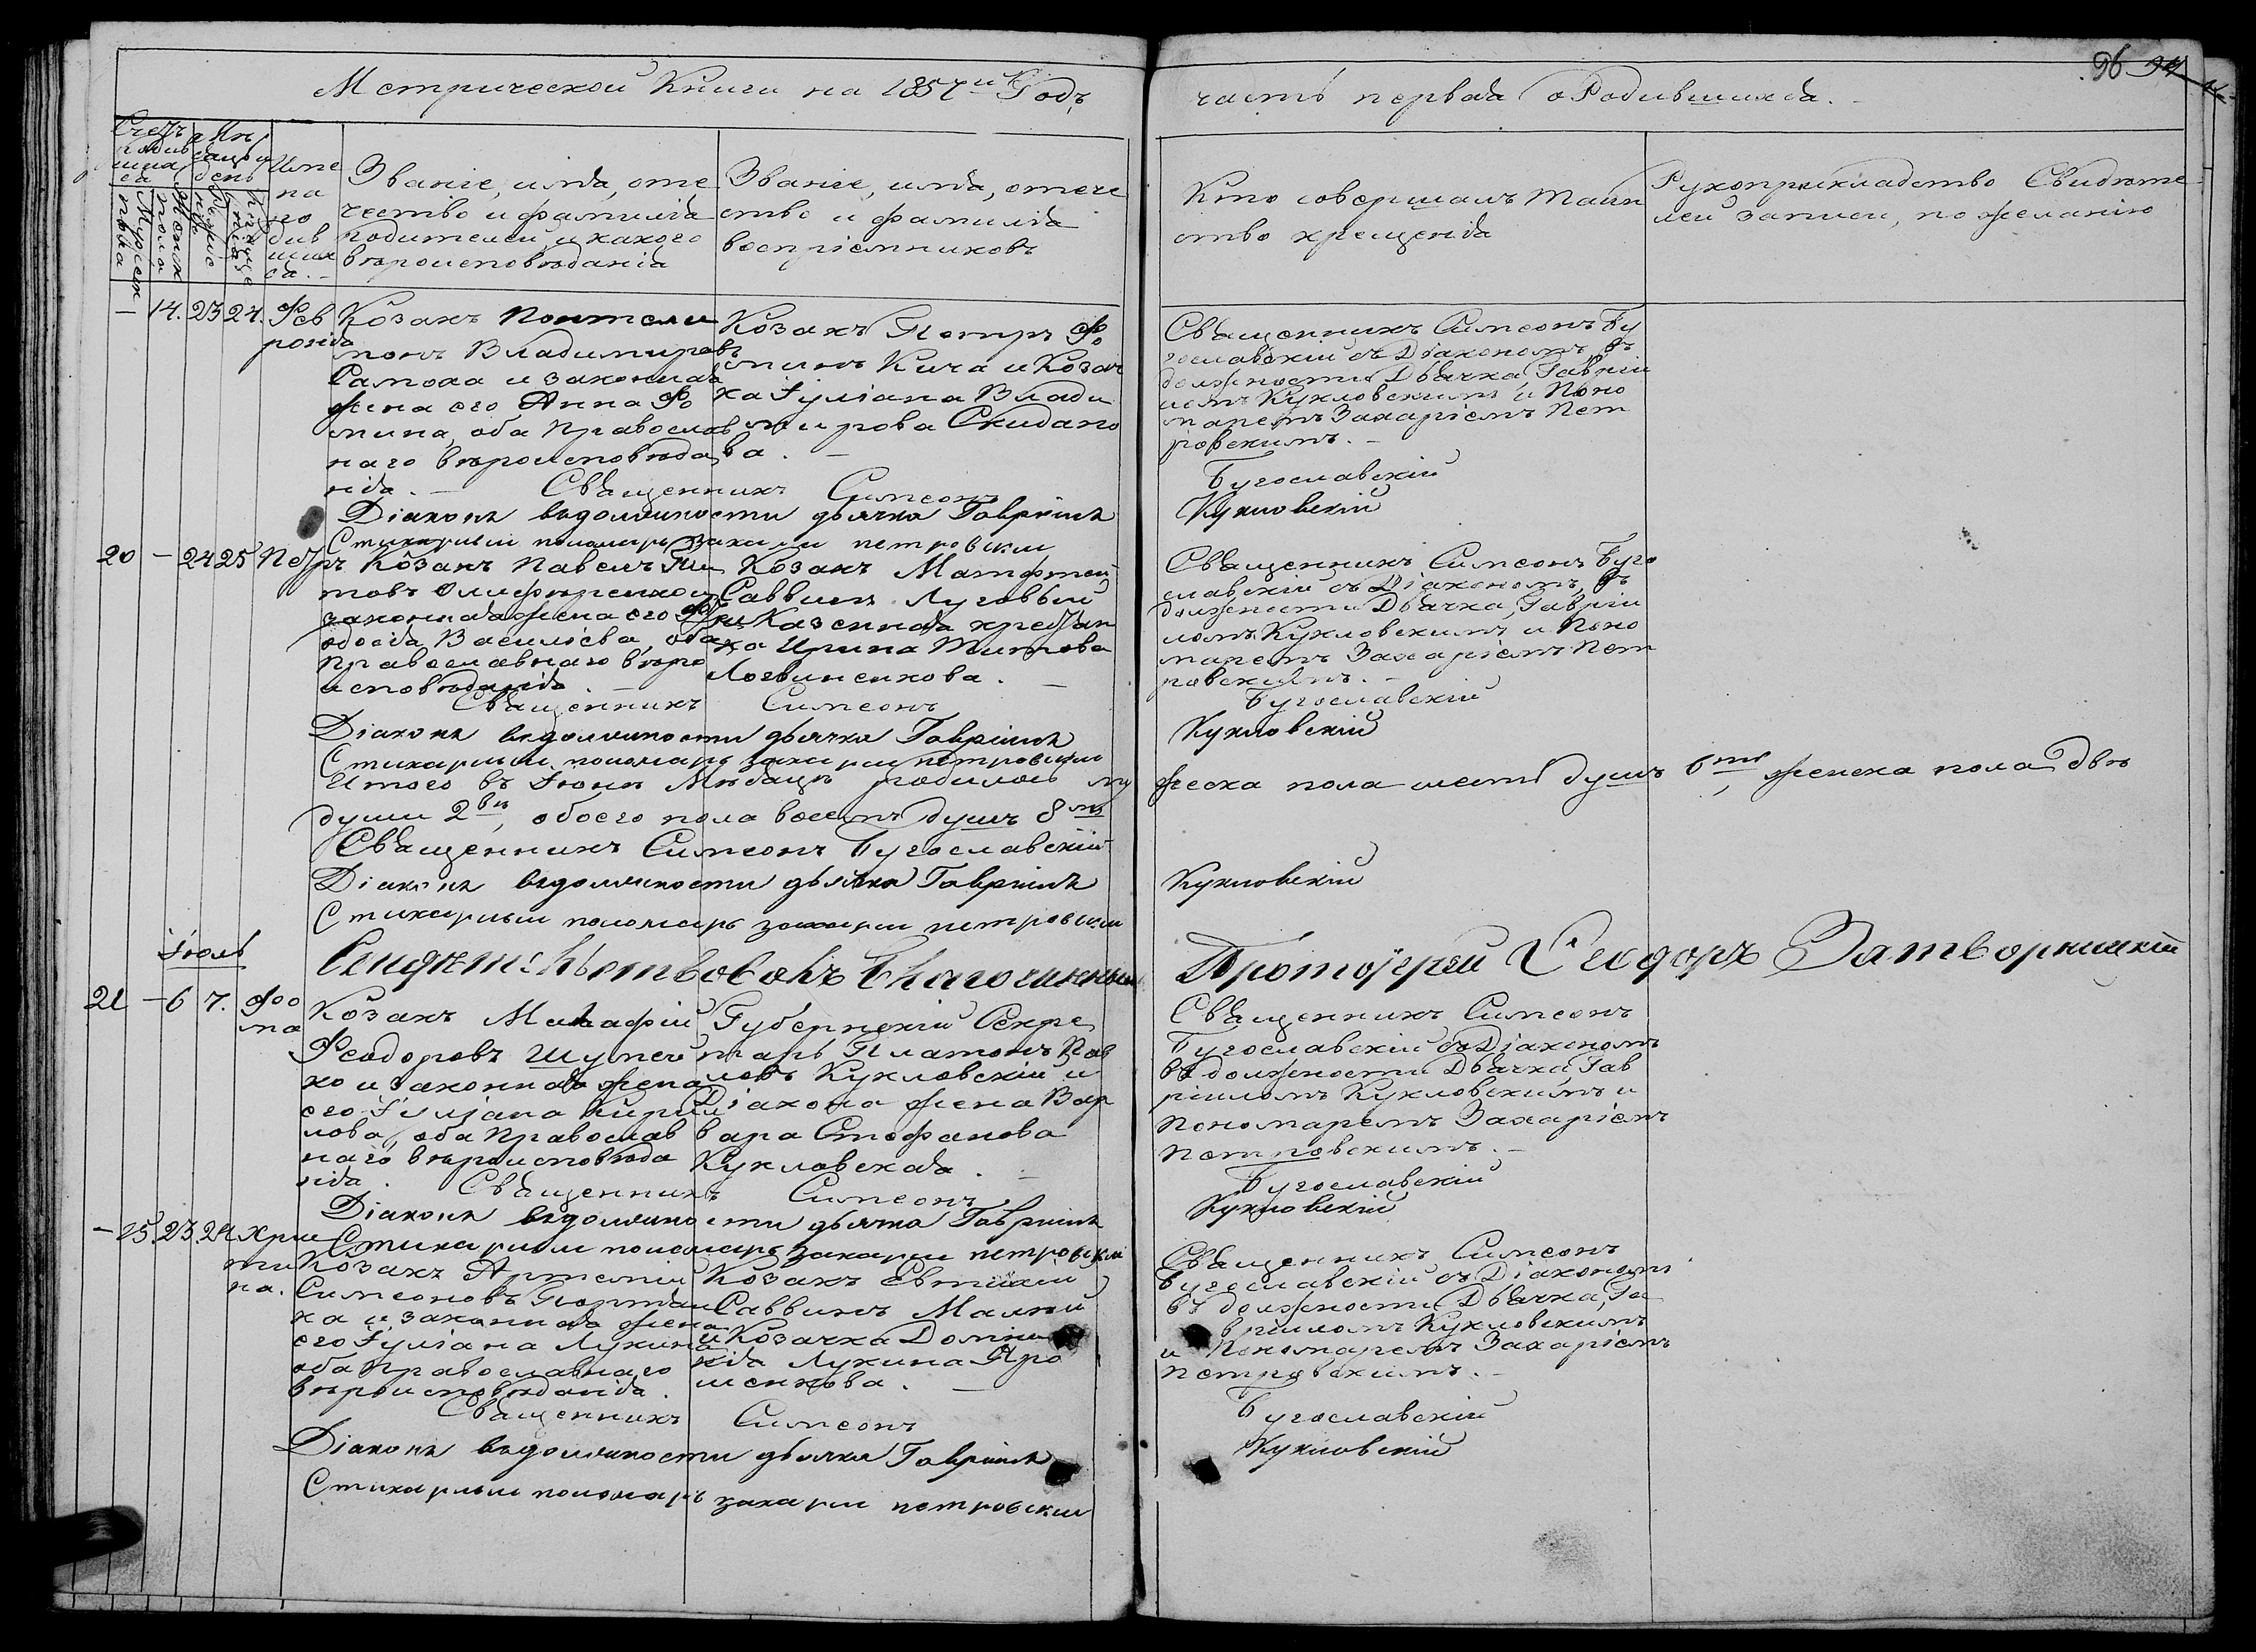 Метрической Книги на 1857й Годъ
часть первая о Родившихся.
96
Счетъ родив шихся
Мѣсяцъ и день
Мужеска пола
Женска пола
Рожденія
Крещенія
Имена родив шихся.
Званіе, имя, оте
чество и фамилія
родителей, и какого
вѣроисповѣданія
Званіе, имя, отече
ство и фамилія
воспріемниковъ
Кто совершалъ таин
ство крещенія
Рукоприкладство Свидѣте
лей записи, по желанію
— 14. 23 24. Фев
ронія
Козакъ Понтели
монъ Владимировъ
Самоха и законная
жена его Анна Фо
мина, оба Православ
наго вѣроисповѣда
нія. —
Козакъ Петръ Фо
минъ Кича и Козач
ка Іуліана Влади
мирова Скидано
ва. —
Священникъ Симеонъ Бу
гославскій съ Діакономъ, въ
должности Дьячка, Гавріи
ломъ Кукловскимъ и Поно
маремъ Захаріемъ Пет
ровскимъ. —
Священникъ Симеонъ Бугославскій
Діаконъ въ должности дьячка Гавріилъ Кукловскій
Стихарный пономарь Захарій Петровскій
20 — 24 25 Петръ
Козакъ Павелъ Ти
товъ Олиференко и
законная жена его Фе
одосія Васильева, оба
Православнаго вѣро
исповѣданія. —
Козакъ Матфей
Саввинъ Луговый
и Казенная крестьян
ка Ирина Титова
Логвиненкова. —
Священникъ Симеонъ Буго
славскій съ Діакономъ, въ
должности Дьячка, Гавріи
ломъ Кукловскимъ и Поно
маремъ Захаріемъ Пет
ровскимъ. —
Священникъ Симеонъ Бугославскій
Діаконъ въ должности дьячка Гавріилъ Кукловскій
Стихарный пономарь Захарій Петровскій
Итого въ Іюнѣ Мѣсяцѣ родилось му жеска пола шесть душъ 6ть, женска пола двѣ
души 2вѣ, обоего пола восемь душъ 8мь
Священникъ Симеонъ Бугославскій
Діаконъ въ должности дьячка Гавріилъ Кукловскій
Стихарный пономарь Захарій Петровскій
Свидѣтельствовалъ Благочинный Протоіерей Ѳеодоръ Затворницкій
Іюль
21 — 6 7. Фо
ма
Козакъ Малафій
Феодоровъ Шулей
ко и законная жена
его Іуліана Кири
лова, оба Православ
наго вѣроисповѣда
нія.
Губернскій Секре
тарь Платонъ Пав
ловъ Кукловскій и
Діакона жена Вар
вара Стефанова
Кукловская. —
Священникъ Симеонъ
Бугославскій съ Діакономъ
въ должности Дьячка, Гав
ріиломъ Кукловскимъ и
Пономаремъ Захаріемъ
Петровскимъ. —
Священникъ Симеонъ Бугославскій
Діаконъ въ должности дьячка Гавріилъ Кукловскій
Стихарный пономарь Захарій Петровскій
— 15. 23. 24 Хрис
ти
на.
Козакъ Артемій
Симеоновъ
ка и законная жена
его Іуліана Лукина
оба Православнаго
вѣроисповѣданія.
Козакъ Евтихій
Саввинъ Малый
и Козачка Домни
кія Лукина Яро
шенкова. —
Священникъ Симеонъ
Бугославскій съ Діакономъ
въ должности Дьячка, Га
вріиломъ Кукловскимъ
и Пономаремъ Захаріемъ
Петровскимъ. —
Священникъ Симеонъ Бугославскій
Діаконъ въ должности дьячка Гавріилъ Кукловскій
Стихарный пономарь Захарій Петровскій